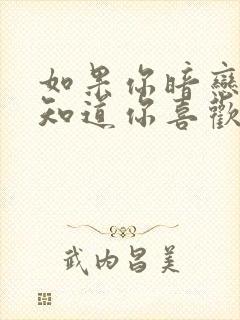 如果你暗戀
知道你喜歡
武內昌美